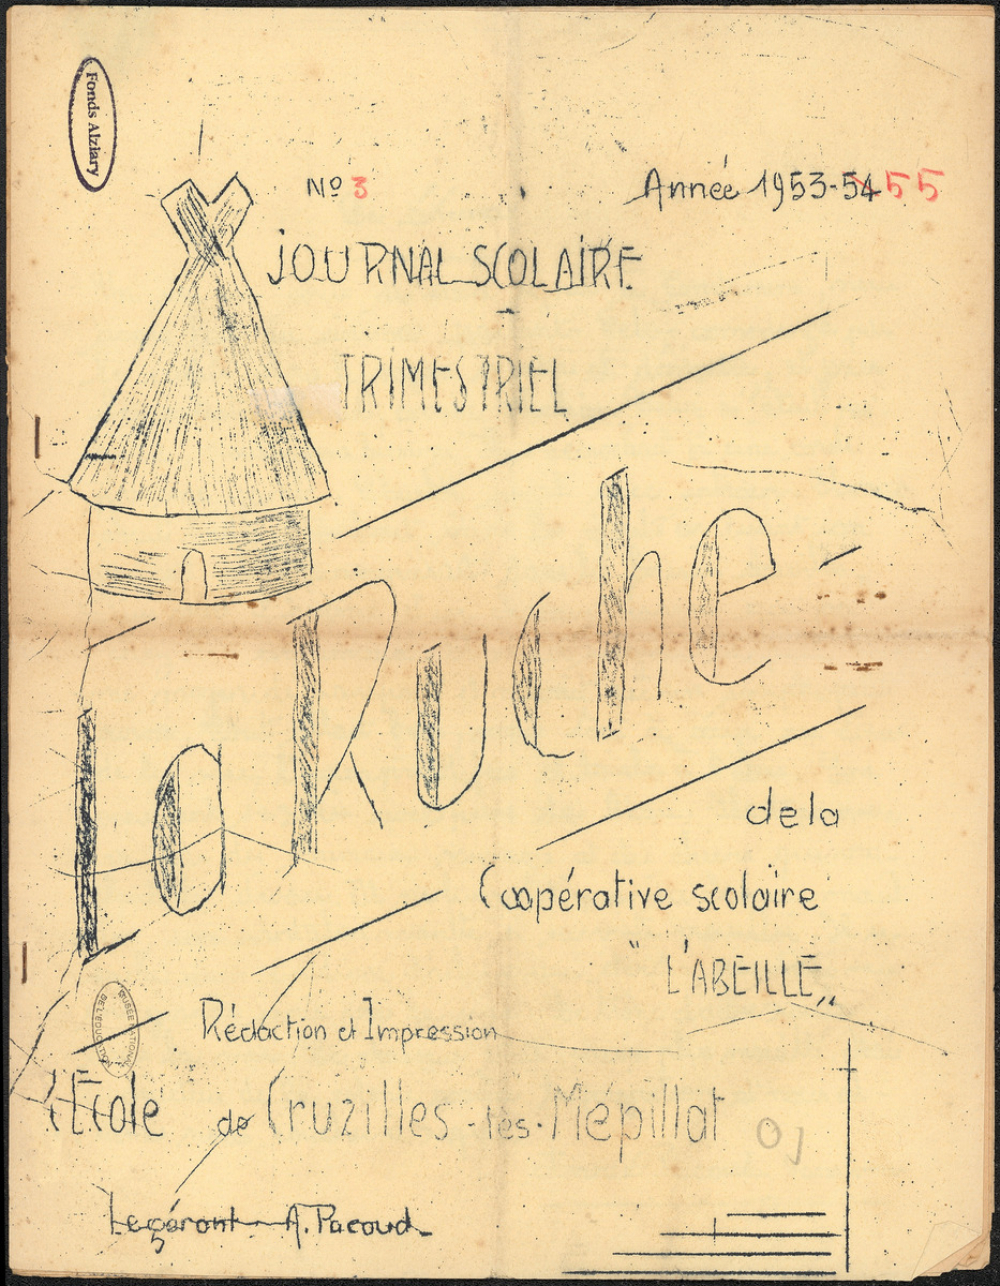 Fonds Alziary
Nº 3
Année 1953-54 55
JOURNAL SCOLAIRE
TRIMESTRIEL
La Ruche
de la
Coopérative scolaire
"L'ABEILLE"
MUSÉE NATIONAL
DE L'ÉDUCATION
Rédaction et Impression
l'École de Cruzilles-lès-Mépillat
01
Le gérant A. Pacoud